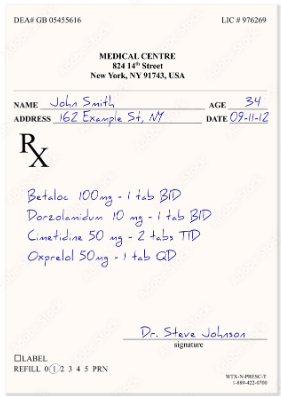 DEA# GB 05455616 LIC # 976269
MEDICAL CENTRE
824 14th Street
New York, NY 91743, USA
NAME John Smith AGE 34
ADDRESS 162 Example St, NY DATE 09-11-12
Rx
Betaloc 100mg - 1 tab BID
Dorzolamidum 10 mg - 1 tab BID
Cimetidine 50 mg - 2 tabs TID
Oxprelol 50mg - 1 tab QD
Dr. Steve Johnson
signature
☐LABEL
REFILL 0 1 2 3 4 5 PRN